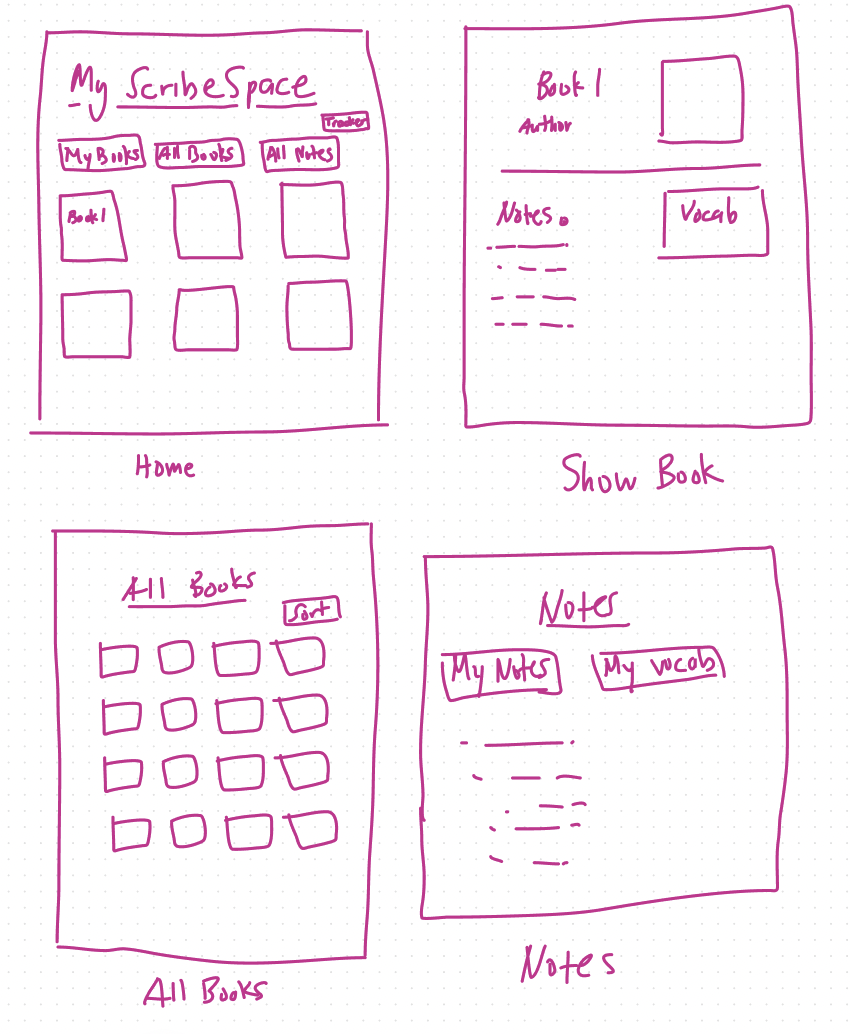 My ScribeSpace
Tracker
My Books All Books All Notes
Book 1
Home
Book 1
Author
Notes.
Vocab
Show Book
All Books
Sort
All Books
Notes
My Notes My vocab
Notes